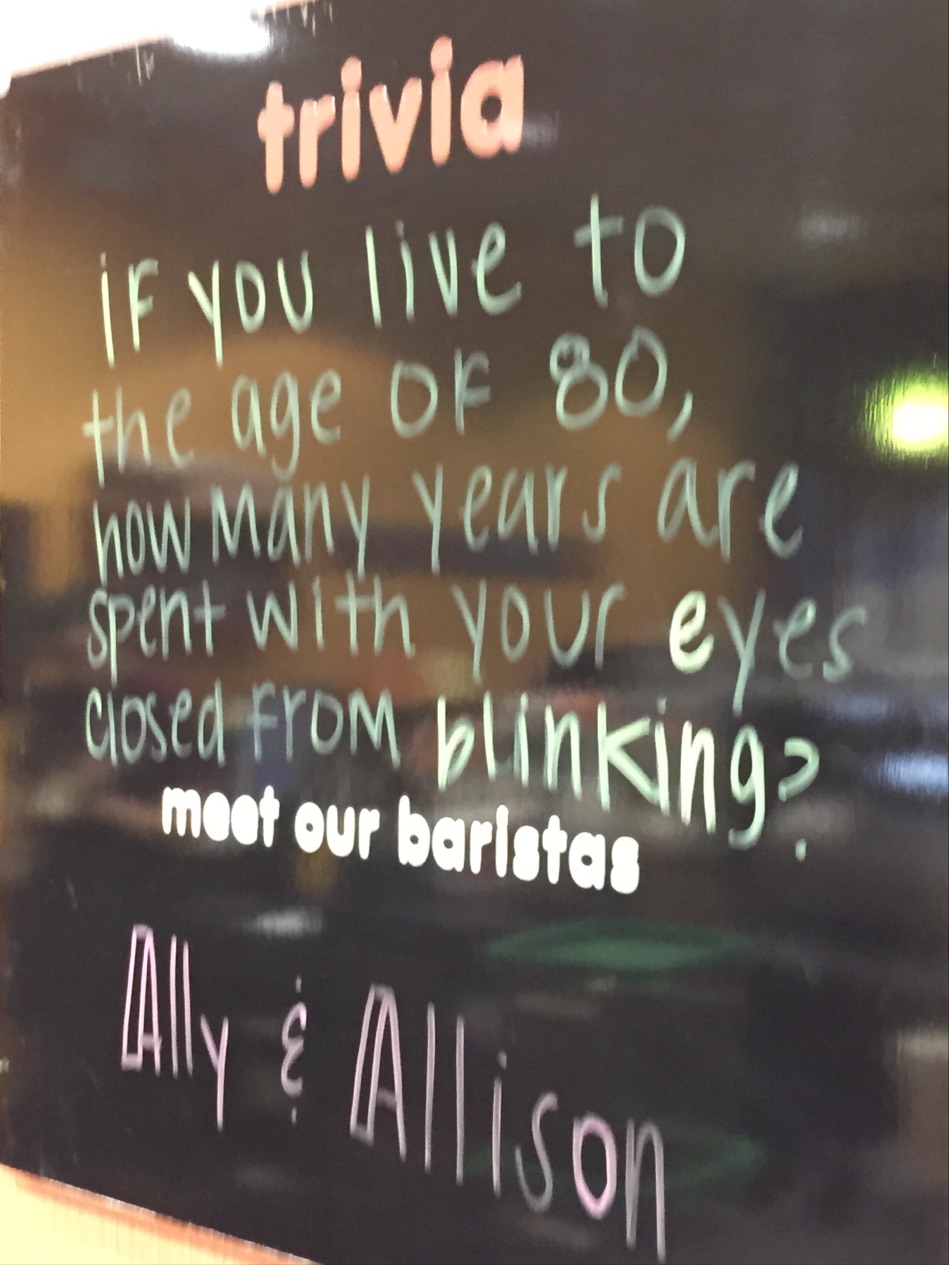 trivia
if you live to
the age of 80,
how many years are
spent with your eyes
closed from blinking?
meet our baristas
Ally & Allison